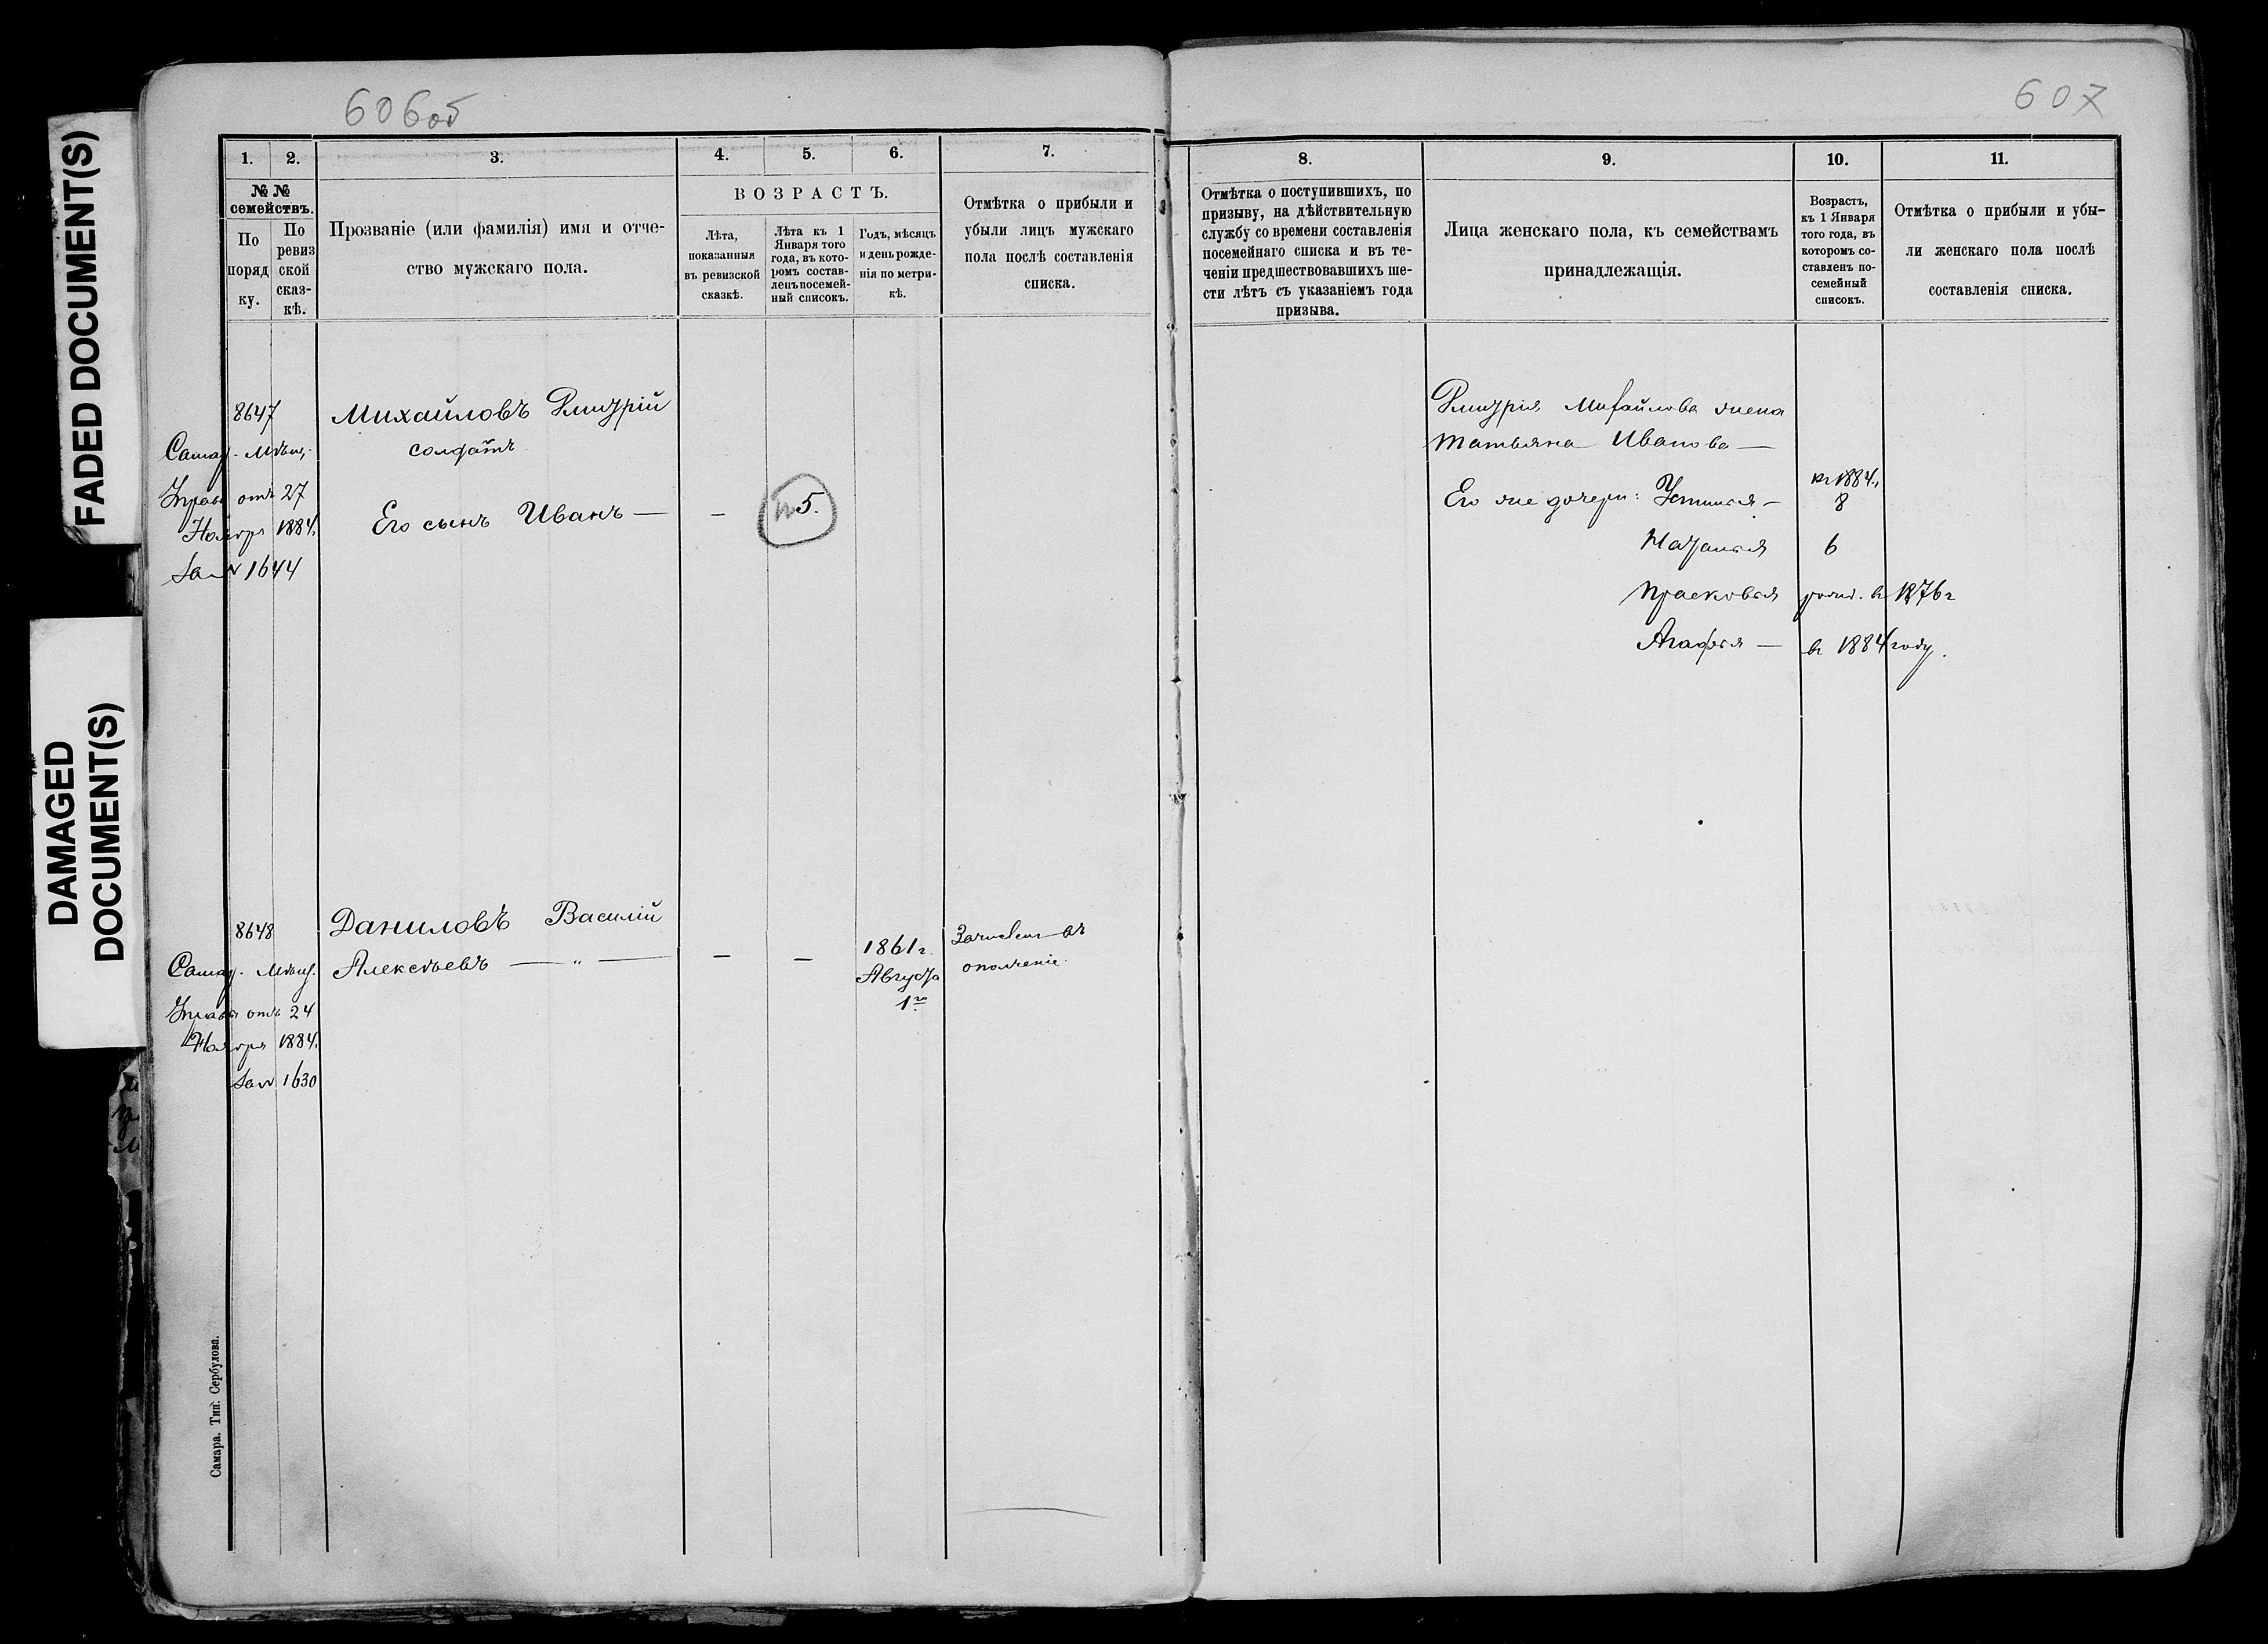 FADED DOCUMENT(S)
DAMAGED
DOCUMENT(S)
606об
1.
2.
3.
4.
5.
6.
7.
№ №
семействъ.
По
поряд
ку.
По
ревиз
ской
сказ-
кѣ.
Прозваніе (или фамилія) имя и отче-
ство мужскаго пола.
ВОЗРАСТЪ.
Лѣта,
показанныя
въ ревизской
сказкѣ.
Лѣта къ 1
Января того
года, въ кото-
ромъ состав-
ленъ посемей-
ный списокъ.
Годъ, мѣсяцъ
и день рожде-
нія по метри-
кѣ.
Отмѣтка о прибыли и
убыли лицъ мужскаго
пола послѣ составленія
списка.
8647
Самар. Мѣщ.
Управы отъ 27
Ноября 1884.
за № 1644
Михайловъ Дмитрій
солдатъ
Его сынъ Иванъ —
—
5.
8648
Самар. Мѣщ.
Управы отъ 24
Ноября 1884.
за № 1630
Даниловъ Василій
Алексѣевъ — „ —
—
—
1861 г.
Августа
1го
Зачислен въ
ополченіе.
Самара. Тип. Сербулова.
607
8.
9.
10.
11.
Отмѣтка о поступившихъ, по
призыву, на дѣйствительную
службу со времени составленія
посемейнаго списка и въ те-
ченіи предшествовавшихъ ше-
сти лѣтъ съ указаніемъ года
призыва.
Лица женскаго пола, къ семействамъ
принадлежащія.
Возрастъ,
къ 1 Января
того года, въ
которомъ со-
ставленъ по-
семейный
списокъ.
Отмѣтка о прибыли и убы-
ли женскаго пола послѣ
составленія списка.
Дмитрія Михайлова жена
Татьяна Иванова —
Его же дочери: Устинья — къ 1884. 8
Наталья 6
Прасковья родил. въ 1876 г
Агафья — въ 1884 году.